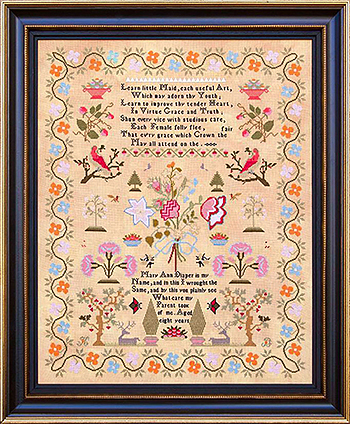 Learn little Maid, each useful Art,
Which may adorn thy Youth,
Learn to improve thy tender Heart,
In Virtue Grace and Truth,
Shun every vice with studious care,
Each Female folly flee, fair
That every grace which Crowns the
May all attend on the.
Mary Ann Draper is my
Name, and in this I wrought the
Same, and by this you plainly see
What care my
Parent took
of me. Aged
eight years